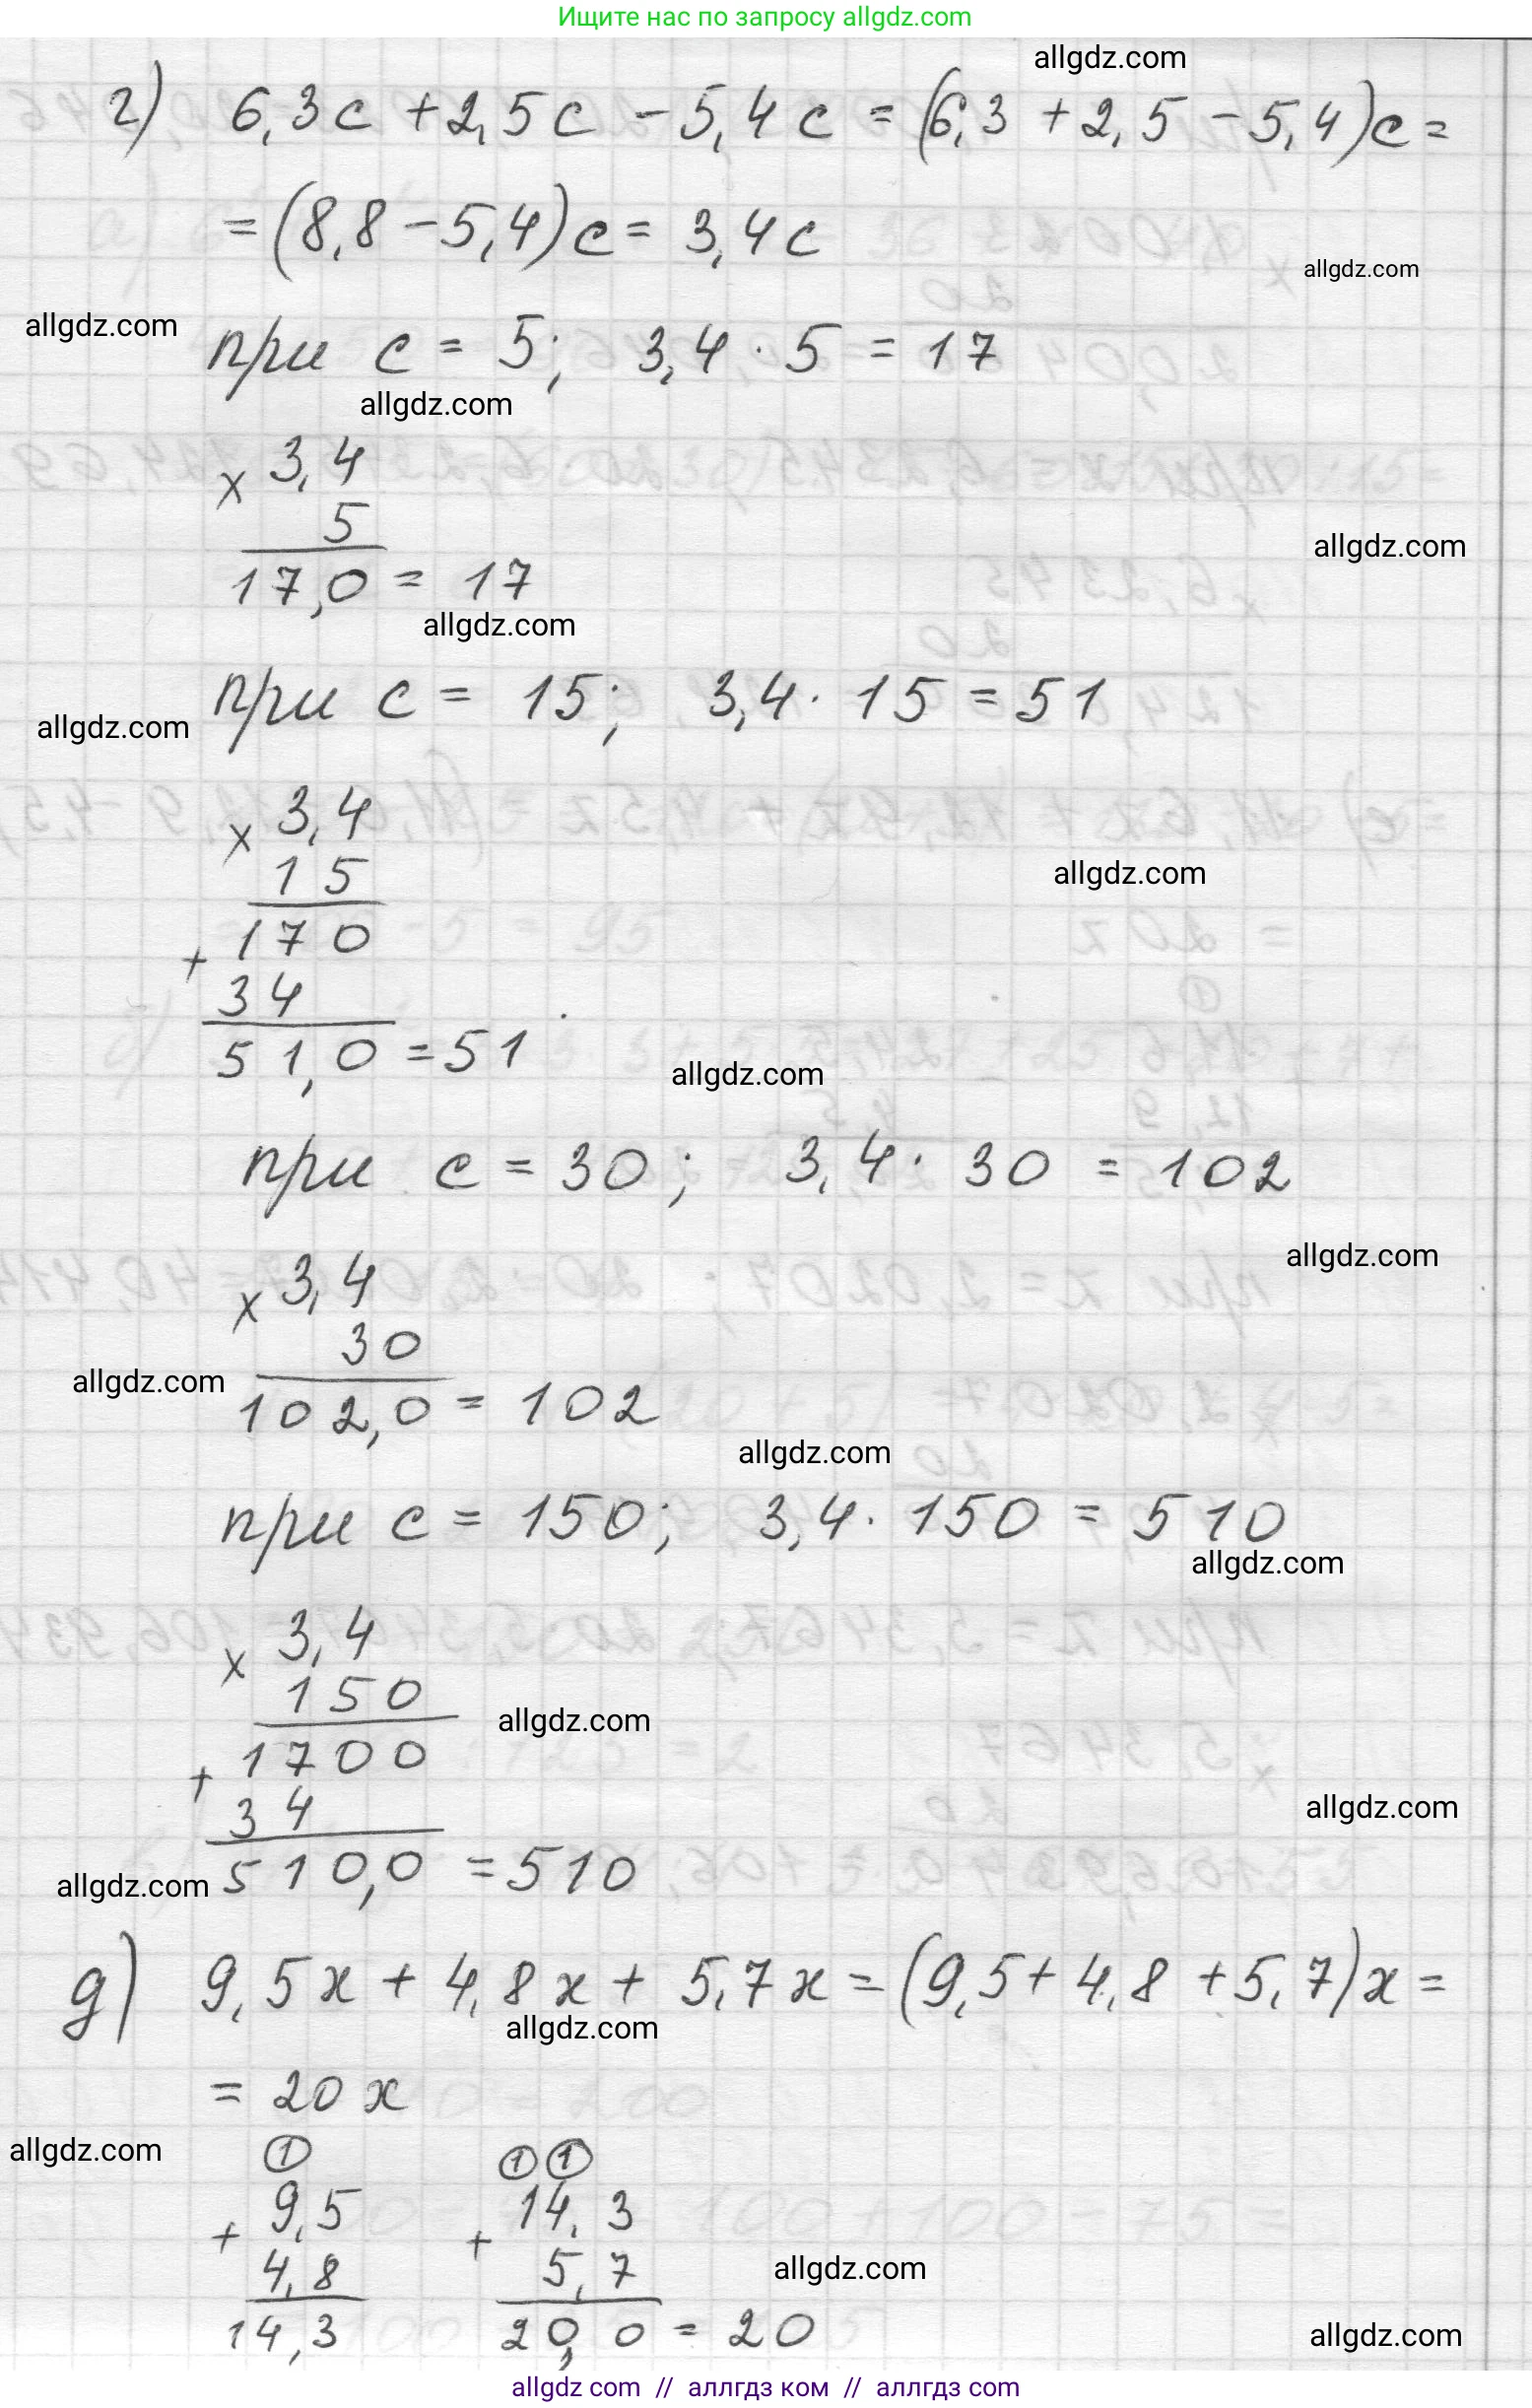 Ищите нас по запросу allgdz.com
allgdz.com
г) 6,3c + 2,5c - 5,4c = (6,3 + 2,5 - 5,4)c =
= (8,8 - 5,4)c = 3,4c
allgdz.com
allgdz.com
при c = 5; 3,4 · 5 = 17
allgdz.com
× 3,4
5
allgdz.com
17,0 = 17
allgdz.com
при c = 15; 3,4 · 15 = 51
allgdz.com
× 3,4
15
allgdz.com
170
+
34
51,0 = 51
allgdz.com
при c = 30; 3,4 · 30 = 102
allgdz.com
× 3,4
30
allgdz.com
102,0 = 102
allgdz.com
при c = 150; 3,4 · 150 = 510
allgdz.com
× 3,4
150
allgdz.com
+ 1700
34
allgdz.com
510,0 = 510
allgdz.com
д) 9,5x + 4,8x + 5,7x = (9,5 + 4,8 + 5,7)x =
allgdz.com
= 20x
allgdz.com
1 1 1
+ 9,5 + 14,3
4,8 5,7
allgdz.com
14,3 20,0 = 20
allgdz.com
allgdz com // аллгдз ком // аллгдз com